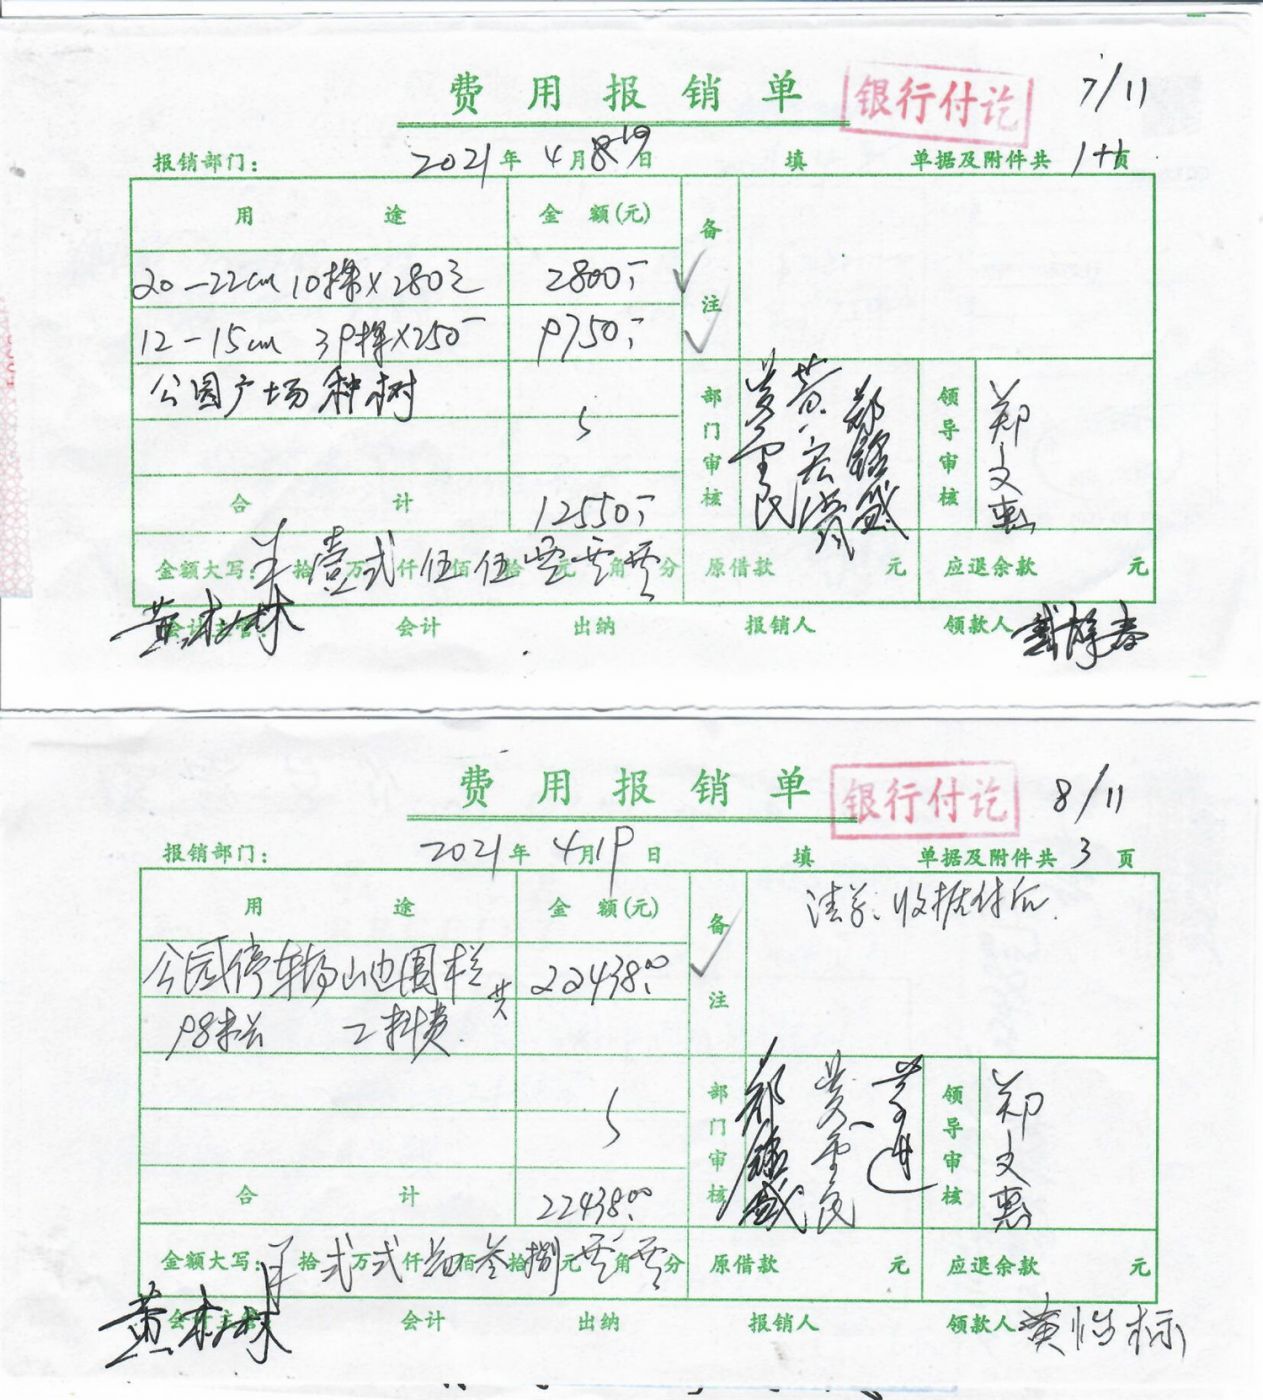 费用报销单
银行付讫
7/11
报销部门：
2021年4月19日
填
单据及附件共1+1页
用途
金额(元)
备注
20-22cm 10棵×280元
2800.-
12-15cm 39棵×250-
9750.-
公园广场种树
部门审核
黄雪民
郑锦盛
领导审核
郑文惠
合计
12550.-
金额大写：拾壹万贰仟伍佰伍拾零元零角零分
原借款 元
应退余款 元
会计主管：
会计
出纳
报销人
领款人
费用报销单
银行付讫
8/11
报销部门：
2021年4月19日
填
单据及附件共3页
用途
金额(元)
备注
收据付后.
公园停车场山边围栏
22438.00
共98米 工料费
部门审核
郑锦盛
黄雪民
领导审核
郑文惠
合计
22438.00
金额大写：拾贰万贰仟肆佰叁拾捌元零角零分
原借款 元
应退余款 元
会计主管：
会计
出纳
报销人
领款人